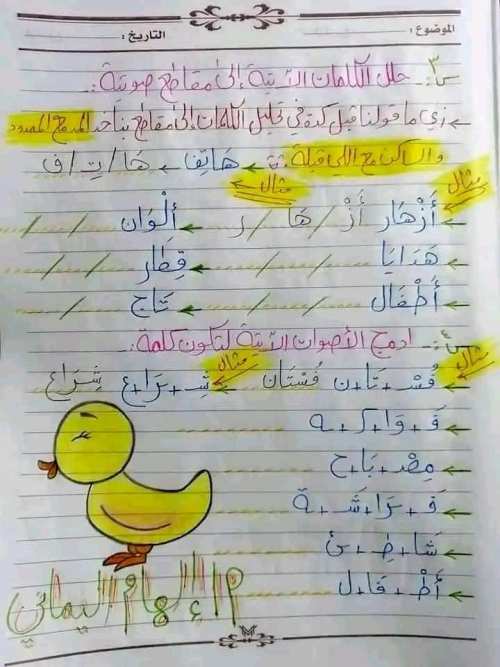 الموضوع: التاريخ:
س٣:- حلل الكلمات الآتية إلى مقاطع صوتية:-
← زي ما قولنا قبل كدة في تحليل الكلمات إلى مقاطع بناخد المدمج الممدود
والساكن مع اللي قبله :- هَاتِف ← هَا / تِ / ف
مثال مثال
← أَزْهَار أَزْ / هَا / ر ← أَلْوَان / /
← هَدَايَا / / ← قِطَار / /
← أَطْفَال / / ← تَاج / /
س٤:- ادمج الأصوات الآتية لتكون كلمة:-
مثال مثال
← فُسْ + تَا + ن فُسْتَان ← شِ + رَا + ع شِرَاع
← فَ + وَا + كِ + ه
← مِصْ + بَا + ح
← فَ + رَا + شَ + ة
← شَا + طِ + ئ
← أَطْ + فَا + ل
م/إلهام اليماني